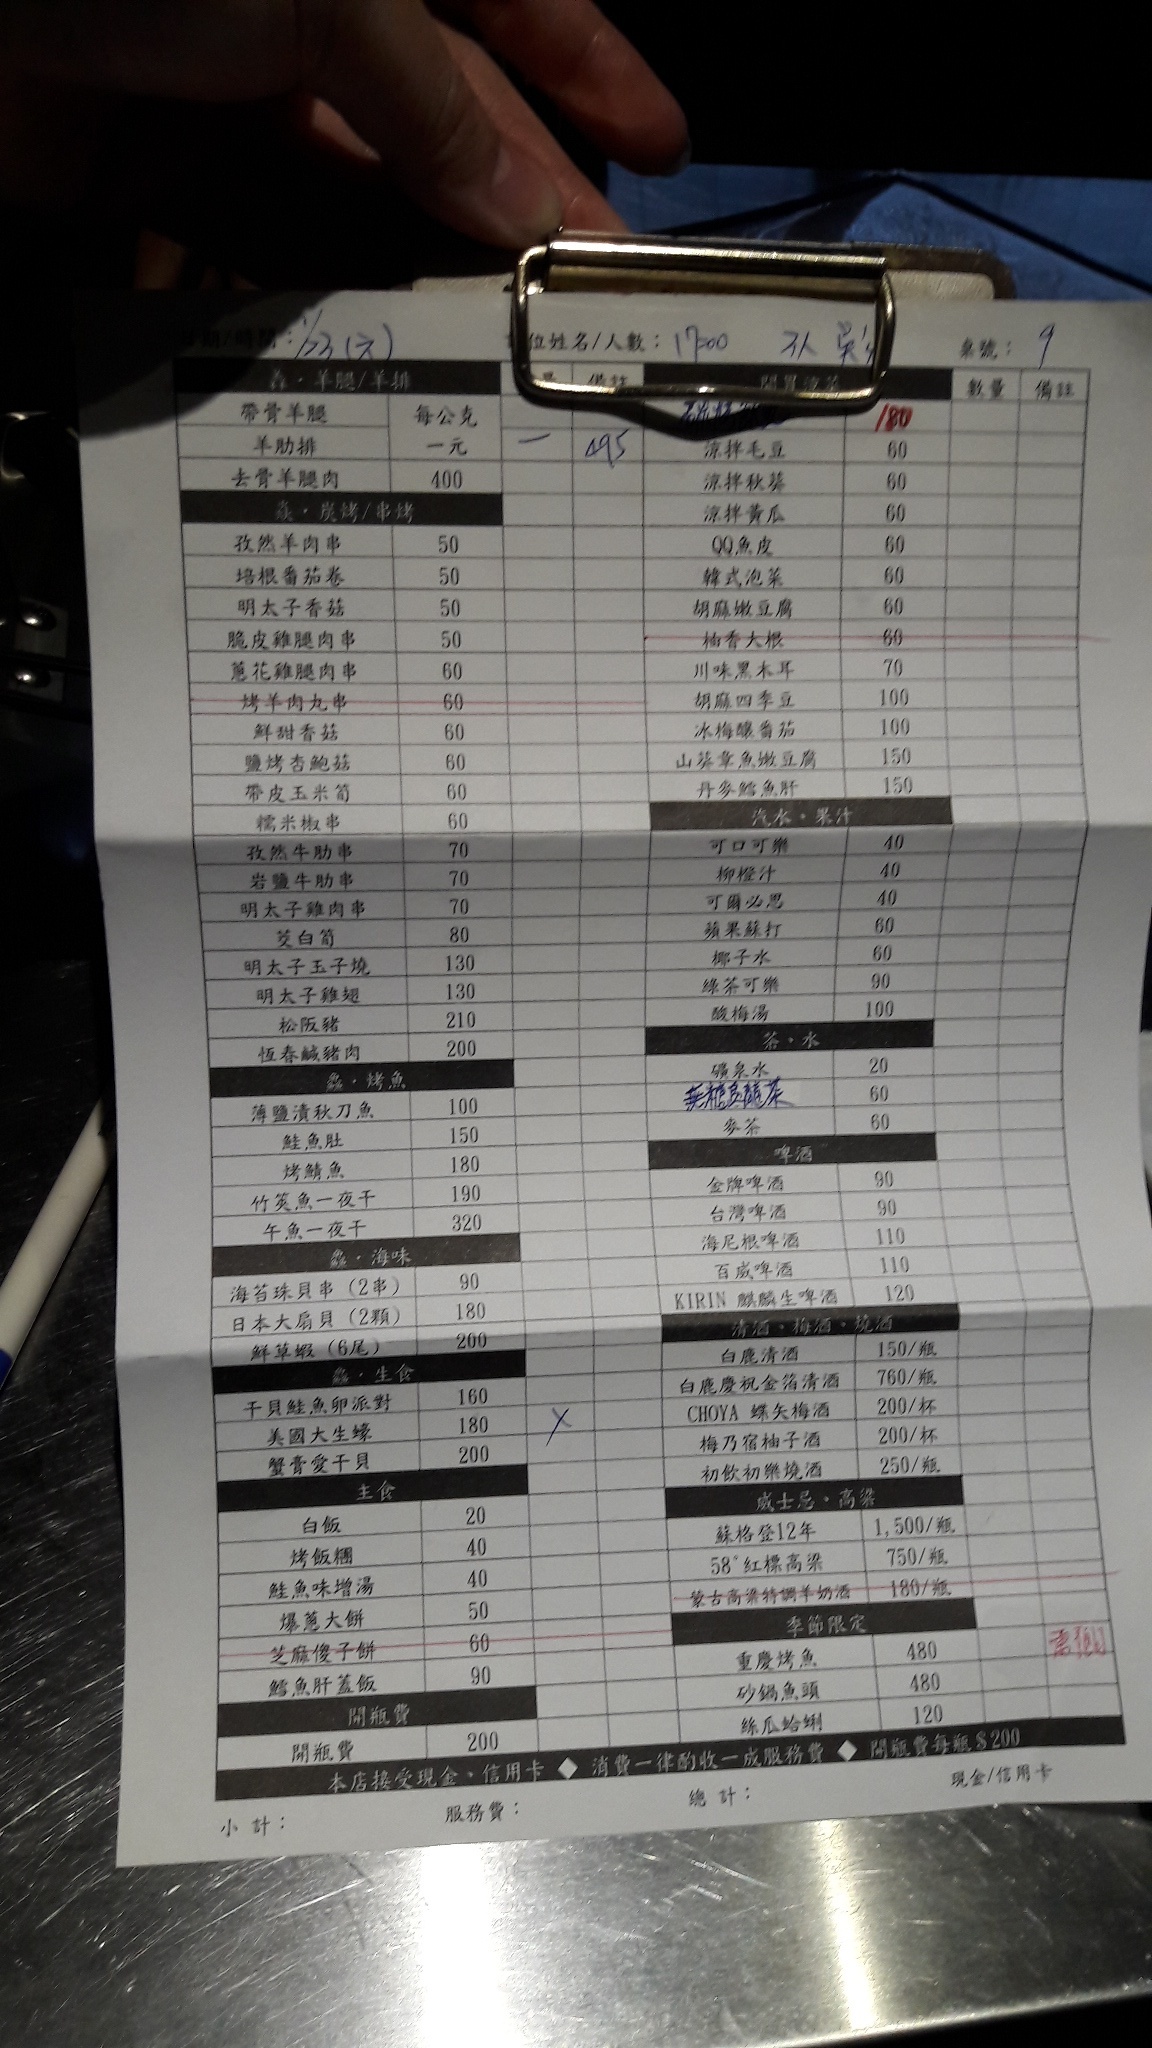 時間：1/23(六) 位姓名/人數： 17:00 桌號： 9
羊腿/羊排 備註
帶骨羊腿 每公克
羊肋排 一元 一 495
去骨羊腿肉 400
炭烤/串烤
孜然羊肉串 50
培根番茄卷 50
明太子香菇 50
脆皮雞腿肉串 50
蔥花雞腿肉串 60
烤羊肉丸串 60
鮮甜香菇 60
鹽烤杏鮑菇 60
帶皮玉米筍 60
糯米椒串 60
孜然牛肋串 70
岩鹽牛肋串 70
明太子雞肉串 70
茭白筍 80
明太子玉子燒 130
明太子雞翅 130
松阪豬 210
恆春鹹豬肉 200
鱻・烤魚
薄鹽漬秋刀魚 100
鮭魚肚 150
烤鯖魚 180
竹筴魚一夜干 190
午魚一夜干 320
鱻・海味
海苔珠貝串（2串） 90
日本大扇貝（2顆） 180
鮮草蝦（6尾） 200
鱻・生食
干貝鮭魚卵派對 160
美國大生蠔 180 X
蟹膏愛干貝 200
主食
白飯 20
烤飯糰 40
鮭魚味增湯 40
爆蔥大餅 50
芝麻傻子餅 60
鱈魚肝蓋飯 90
開瓶費
開瓶費 200
數量 備註
180
涼拌毛豆 60
涼拌秋葵 60
涼拌黃瓜 60
QQ魚皮 60
韓式泡菜 60
胡麻嫩豆腐 60
柚香大根 60
川味黑木耳 70
胡麻四季豆 100
冰梅釀番茄 100
山葵章魚嫩豆腐 150
丹麥鱈魚肝 150
汽水・果汁
可口可樂 40
柳橙汁 40
可爾必思 40
蘋果蘇打 60
椰子水 60
綠茶可樂 90
酸梅湯 100
茶・水
礦泉水 20
無糖烏龍茶 60
麥茶 60
啤酒
金牌啤酒 90
台灣啤酒 90
海尼根啤酒 110
百威啤酒 110
KIRIN 麒麟生啤酒 120
清酒・梅酒・燒酒
白鹿清酒 150/瓶
白鹿慶祝金箔清酒 760/瓶
CHOYA 蝶矢梅酒 200/杯
梅乃宿柚子酒 200/杯
初飲初樂燒酒 250/瓶
威士忌・高粱
蘇格登12年 1,500/瓶
58°紅標高粱 750/瓶
蒙古高粱特調羊奶酒 180/瓶
季節限定
重慶烤魚 480
砂鍋魚頭 480
絲瓜蛤蜊 120
本店接受現金・信用卡 ◆ 消費一律酌收一成服務費 ◆ 開瓶費每瓶$200
小計： 服務費： 總計： 現金/信用卡